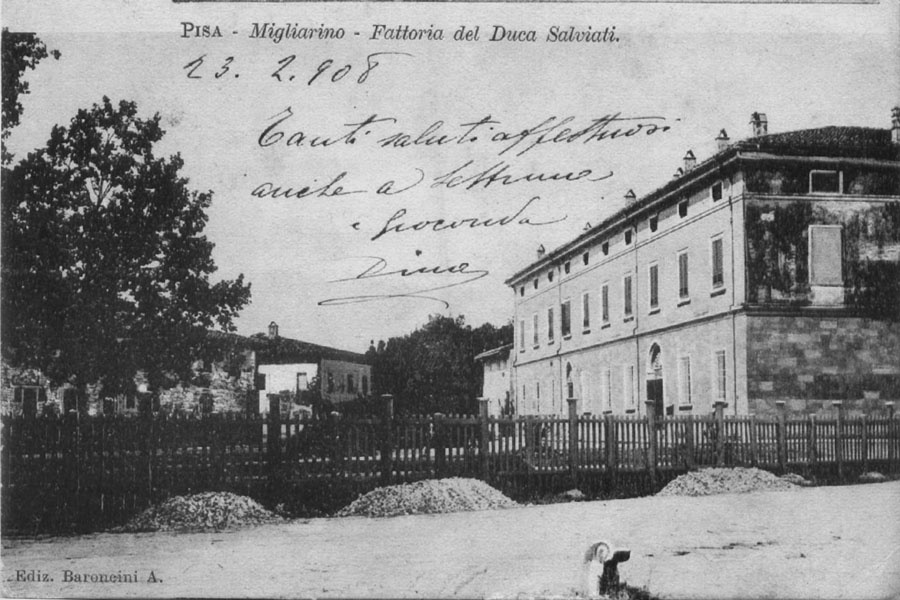 PISA - Migliarino - Fattoria del Duca Salviati.
23. 2. 908
Tanti saluti affettuosi
anche a Settimia
e Gioconda
Dina
Ediz. Baroncini A.